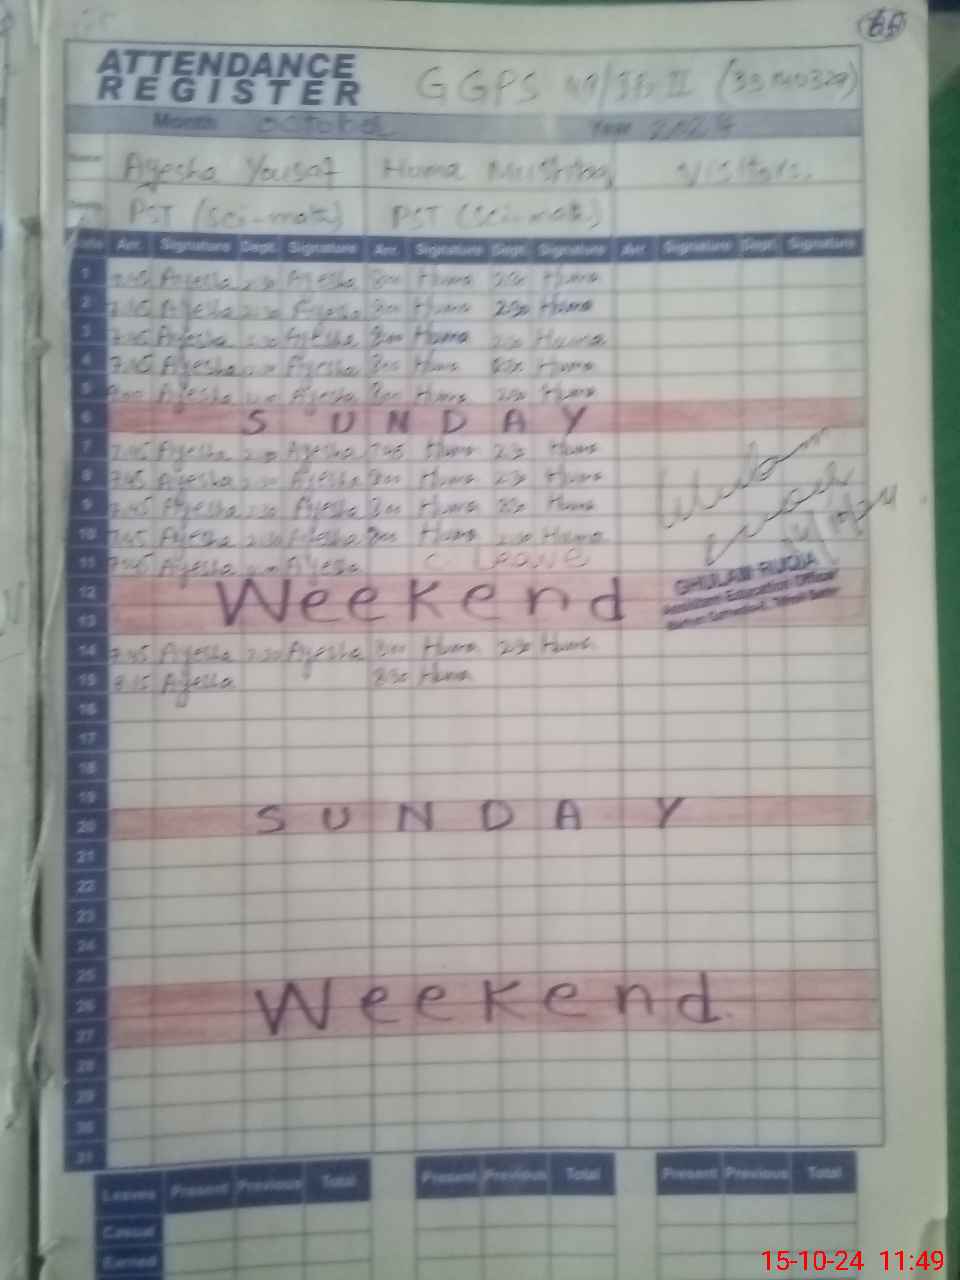 ATTENDANCE REGISTER GGPS
Month October Year 2024
Ayesha Yousaf Huma Mushtaq Visitors.
PST (Sci-math) PST (Sci-math)
Arr. Signature Dept. Signature Arr. Signature Dept. Signature Arr. Signature Dept. Signature
1 7.45 Ayesha Ayesha 8:00 Huma 2:30 Huma
2 7.45 Ayesha 2:30 Ayesha 8:00 Huma 2:30 Huma
3 7.45 Ayesha Ayesha 8:00 Huma 2:30 Huma
4 7.45 Ayesha Ayesha 8:00 Huma Huma
5 8:00 Ayesha Ayesha 8:00 Huma 2:30 Huma
6 SUNDAY
7 7.45 Ayesha 2:30 Ayesha 7:45 Huma 2:30 Huma
8 7.45 Ayesha 2:30 Ayesha 8:00 Huma 2:30 Huma
9 7.45 Ayesha 2:30 Ayesha 8:00 Huma 2:30 Huma
10 7.45 Ayesha 2:30 Ayesha 8:00 Huma 2:30 Huma
11 7.45 Ayesha Ayesha C Leave
12 Weekend
13
GHULAM RUQIA
Assistant Education Officer
14 7.45 Ayesha 2:30 Ayesha 8:00 Huma 2:30 Huma
15 8.15 Ayesha 8:30 Huma
16
17
18
19
20 SUNDAY
21
22
23
24
25
26 Weekend.
27
28
29
30
31
Leaves Present Previous Total Present Previous Total Present Previous Total
Casual
Earned
15-10-24 11:49